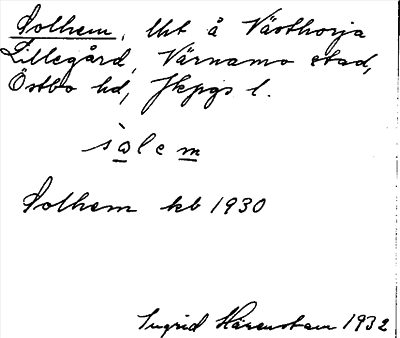 Solhem, lht å Västhorja
Lillegård, Värnamo stad,
Östbo hd, Jkpgs l.
sàlem
Solhem kb 1930
Ingrid 1932